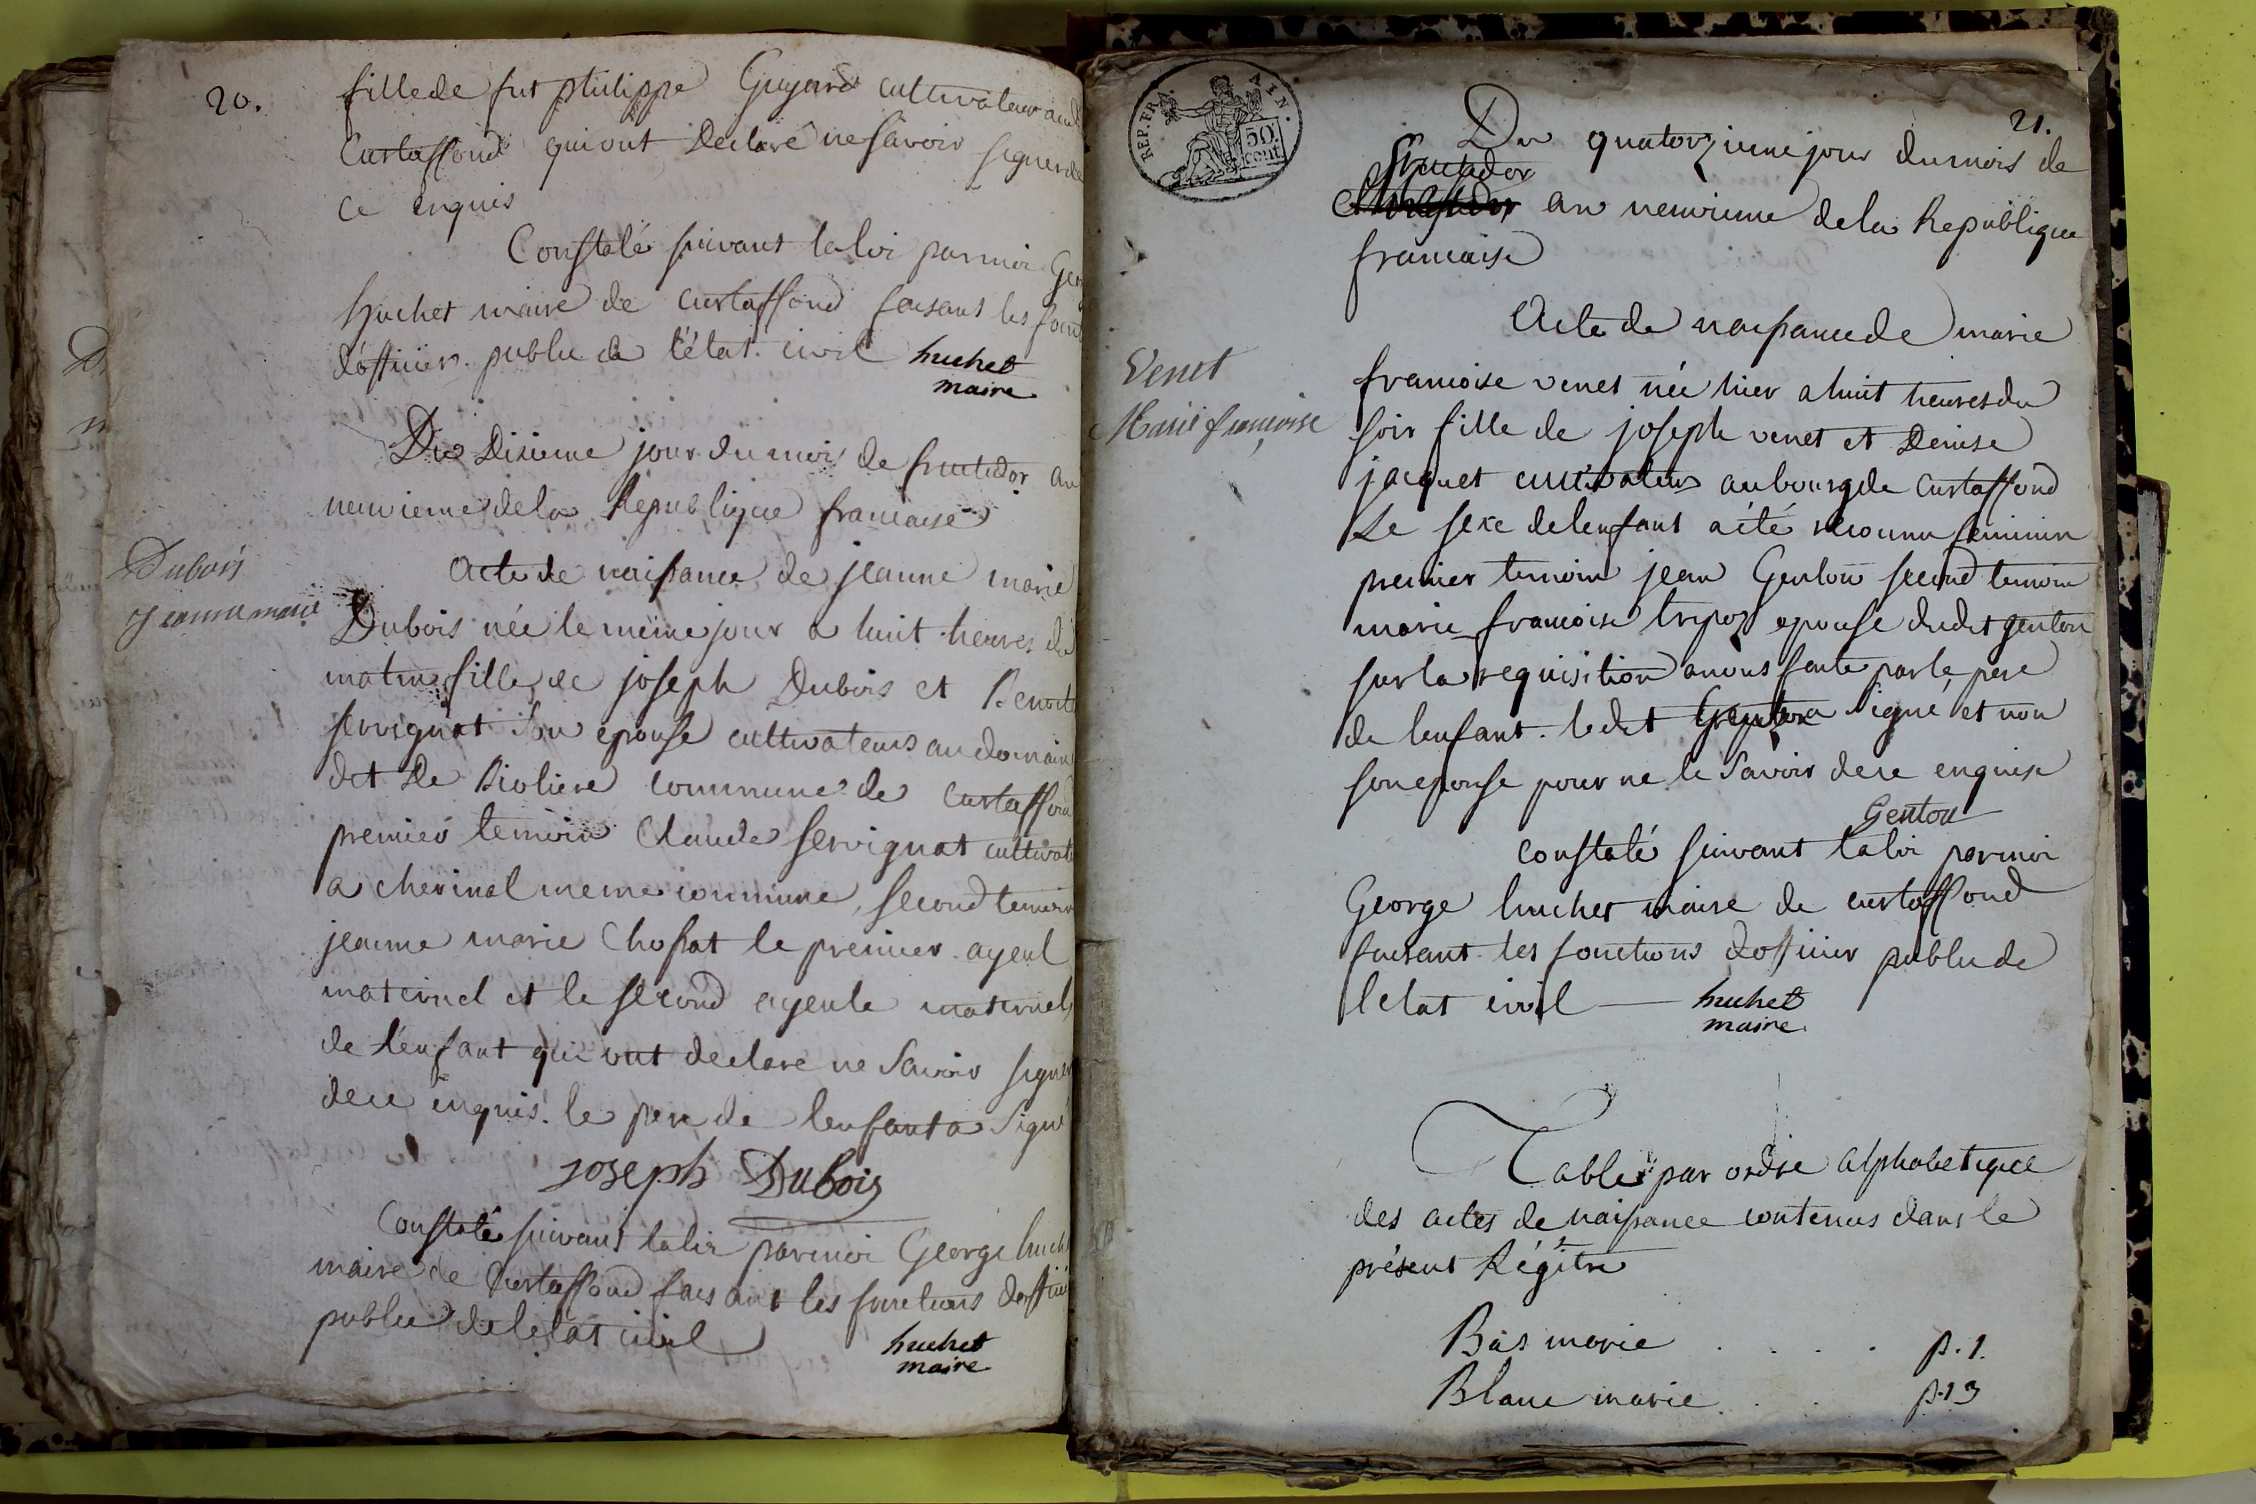 20.
fille de fut philippe Guyard cultivateur au d
Curtaffond qui ont Declaré ne Savoir signer de
ce enquis
Constaté suivant la loi par moi Geo
huchet maire de curtaffond faisant les fonc
d'officier public de l'état civil huchet
maire
Du Dixieme jour du mois de fructidor an
neuvieme de la Republique francaise
Dubois
Jeanne marie
Acte de naissance de jeanne marie
Dubois née le meme jour a huit heures du
matin fille de joseph Dubois et Benoite
servignat son epouse cultivateurs au domaine
dit De Bioliere commune de Curtaffond
premier temoin Claude servignat cultivate
a cherinal meme commune, second temoin
jeanne marie Chossat le premier ayeul
maternel et le second ayeule maternel
de l'enfant qui ont declare ne Savoir signer
de ce enquis. le pere de lenfant a Signé
Joseph Dubois
Constaté suivant la loi par moi George huch
maire de Curtaffond faisant les fonctions d'offici
public de letat civil huchet
maire
REP. FRA. AIN.
50 cent
21.
Du quatorzieme jour du mois de
fructidor
an neuvieme de la Republique
francaise
Venet
Marie françoise
Acte de naissance de marie
francoise venet née hier a huit heures du
soir fille de joseph venet et Denise
jacquet cultivateurs au bourg de Curtaffond
Le sexe de lenfant a été reconnu feminin
premier temoin jean Genton second temoin
marie francoise tripoz epouse dudit genton
sur la requisition a nous faite par le pere
de lenfant. ledit Genton a signé et non
son epouse pour ne le Savoir de ce enquise
Genton
Constaté suivant la loi par moi
George huchet maire de curtaffond
faisant les fonctions d'officier public de
letat civil huchet
maire
Table par ordre alphabetique
des actes de naissance contenus dans le
présent Régitre
Bas marie . . . . p. 1.
Blanc marie . . p. 13